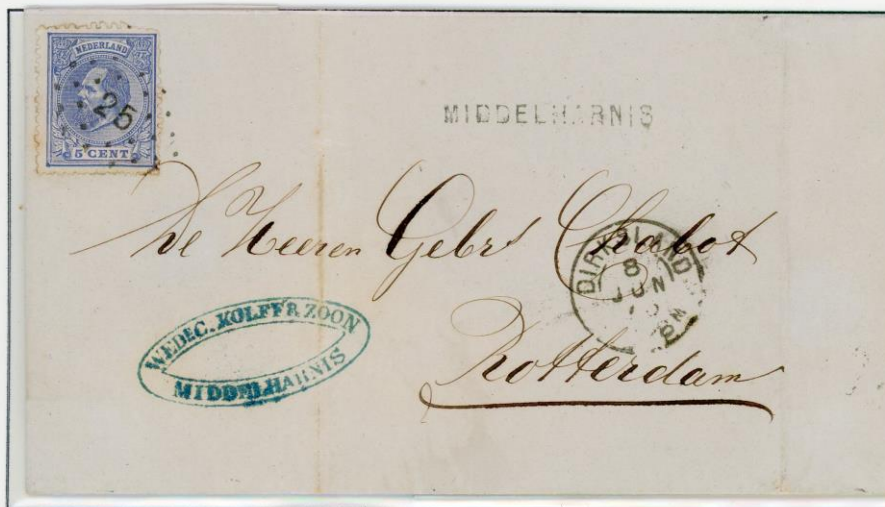 NEDERLAND
25
5 CENT
MIDDELHARNIS
De Heeren Gebrs Chabot
DIRKSLAND
8
JUN
Rotterdam
WED. C. KOLFF & ZOON
MIDDELHARNIS